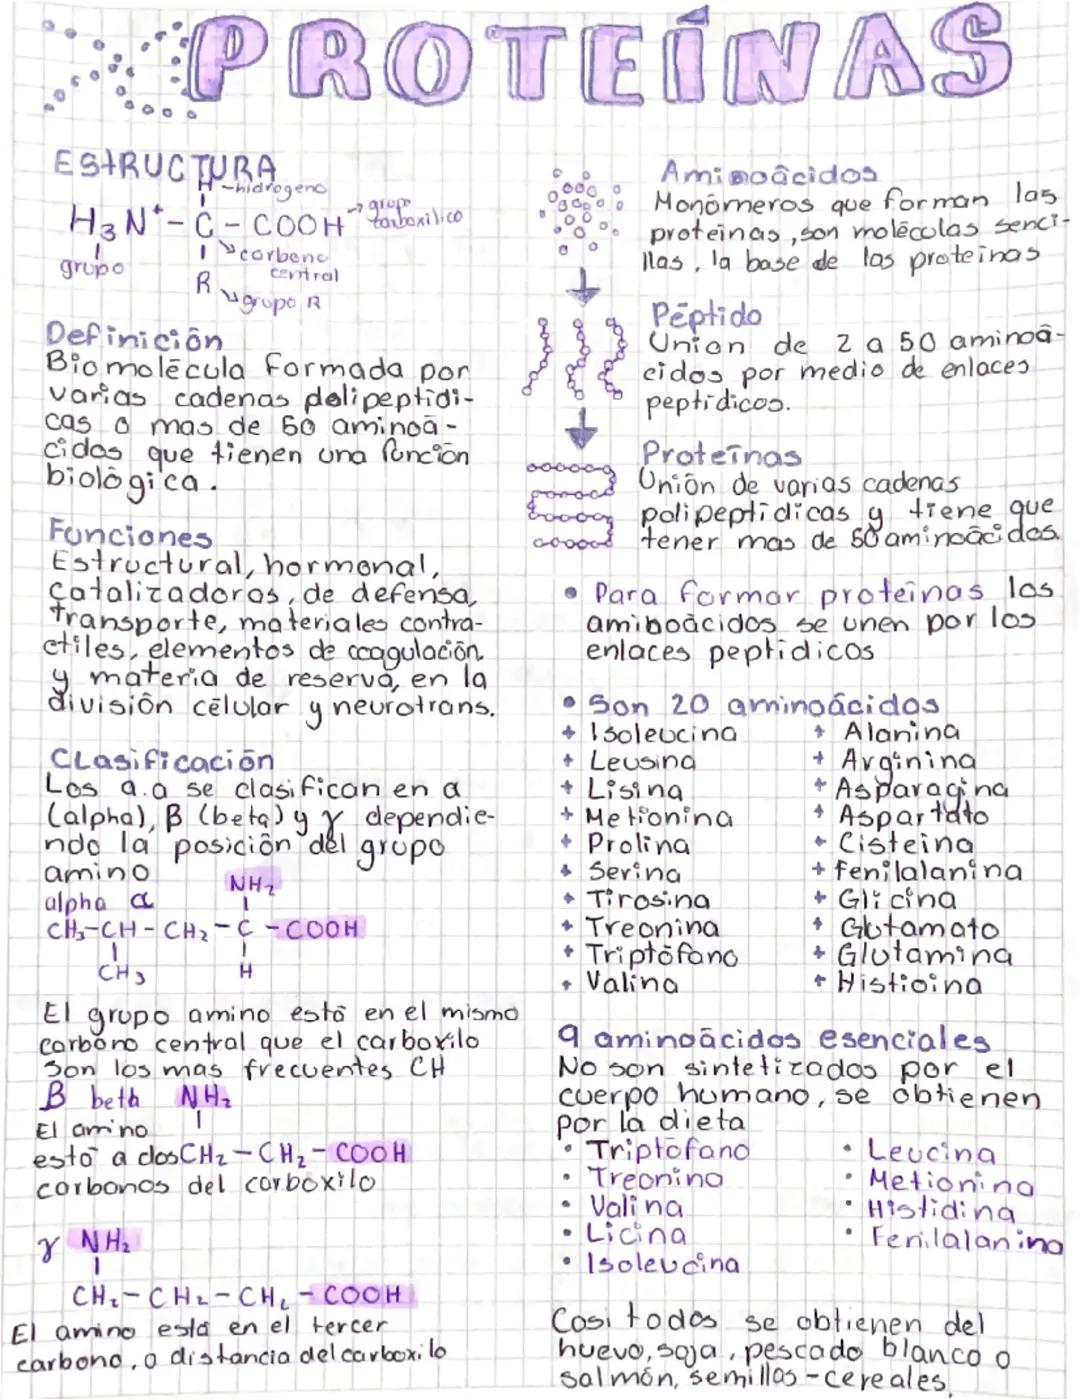 PROTEÍNAS
ESTRUCTURA
H -hidrogeno
H₃N⁺-C-COOH → grupo carboxilico
grupo
carbono central
R
grupo R
Definición
Biomolécula formada por
varias cadenas polipeptidi-
cas o mas de 50 aminoá-
cidos que tienen una función
biológica.
Funciones
Estructural, hormonal,
catalizadoras, de defensa,
transporte, materiales contra-
ctiles, elementos de coagulación
y materia de reserva, en la
división célular y neurotrans.
Clasificación
Los a.a se clasifican en α
(alpha), β (beta) y γ dependie-
ndo la posición del grupo
amino
alpha α
NH₂
CH₃-CH-CH₂-C-COOH
CH₃ H
El grupo amino está en el mismo
carbono central que el carboxilo
Son los mas frecuentes CH
β beta NH₂
El amino
está a dos CH₂-CH₂-COOH
carbonos del carboxilo
γ NH₂
CH₂-CH₂-CH₂-COOH
El amino está en el tercer
carbono, a distancia del carboxilo
Aminoácidos
Monómeros que forman las
proteinas, son moléculas senci-
llas, la base de las proteinas
Péptido
Union de 2 a 50 aminoá-
cidos por medio de enlaces
peptidicos.
Proteínas
Unión de varias cadenas
polipeptidicas y tiene que
tener mas de 50 aminoácidos.
• Para formar proteinas los
amiboácidos se unen por los
enlaces peptidicos
• Son 20 aminoácidos
+ Isoleucina
+ Leusina
+ Lisina
+ Metionina
+ Prolina
+ Serina
+ Tirosina
+ Treonina
+ Triptófano
+ Valina
+ Alanina
+ Arginina
+ Asparagina
+ Aspartato
+ Cisteina
+ fenilalanina
+ Glicina
+ Glutamato
+ Glutamina
+ Histioina
9 aminoácidos esenciales
No son sintetizados por el
cuerpo humano, se obtienen
por la dieta
• Triptófano
• Treonina
• Valina
• Licina
• Isoleucina
• Leucina
• Metionina
• Histidina
• Fenilalanina
Casi todos se obtienen del
huevo, soja, pescado blanco o
salmón, semillas-cereales,